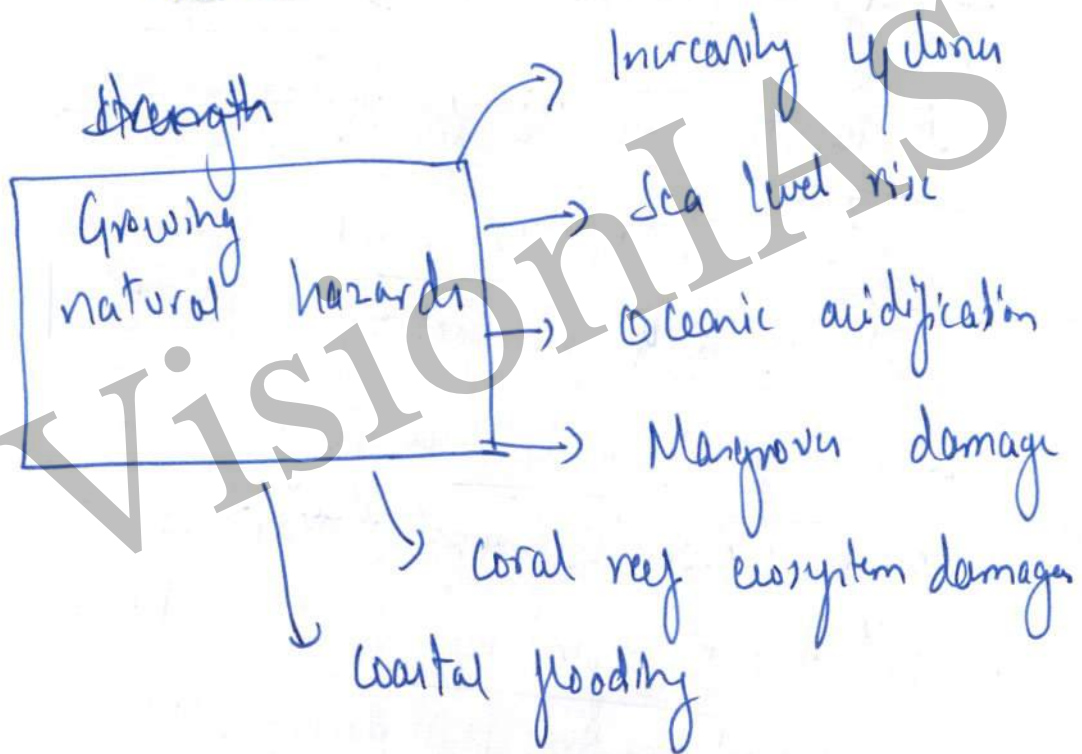 strength
Growing
natural hazards
Increasing cyclones
Sea level rise
Oceanic acidification
Mangroves damage
coral reef ecosystem damages
coastal flooding
VisionIAS